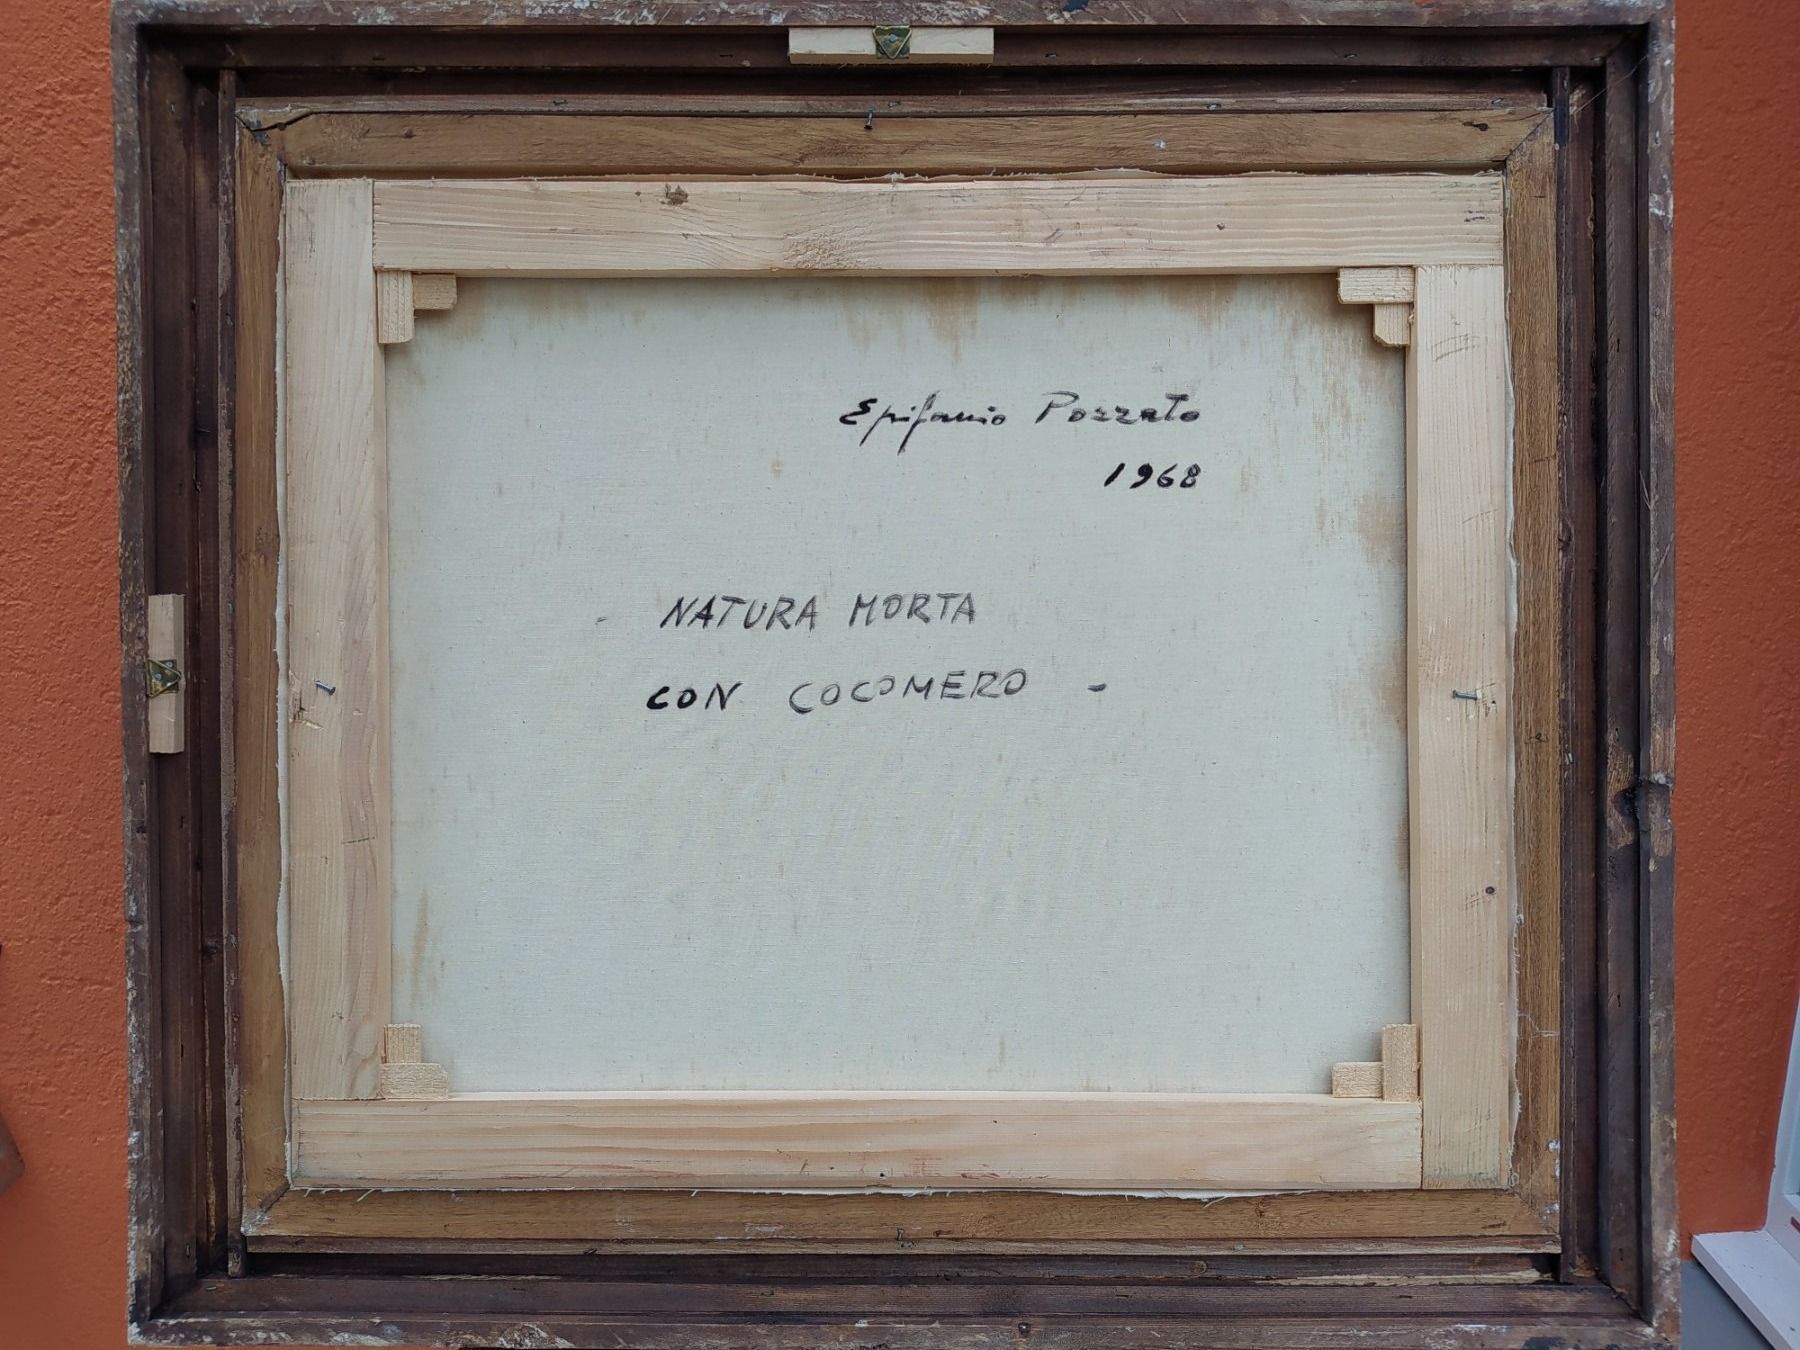 Epifanio Pozzato
1968
- NATURA MORTA
CON COCOMERO -